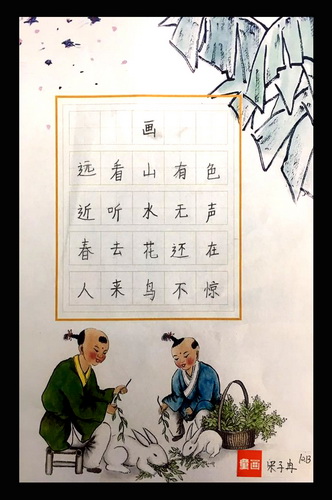 画
远看山有色
近听水无声
春去花还在
人来鸟不惊
童画